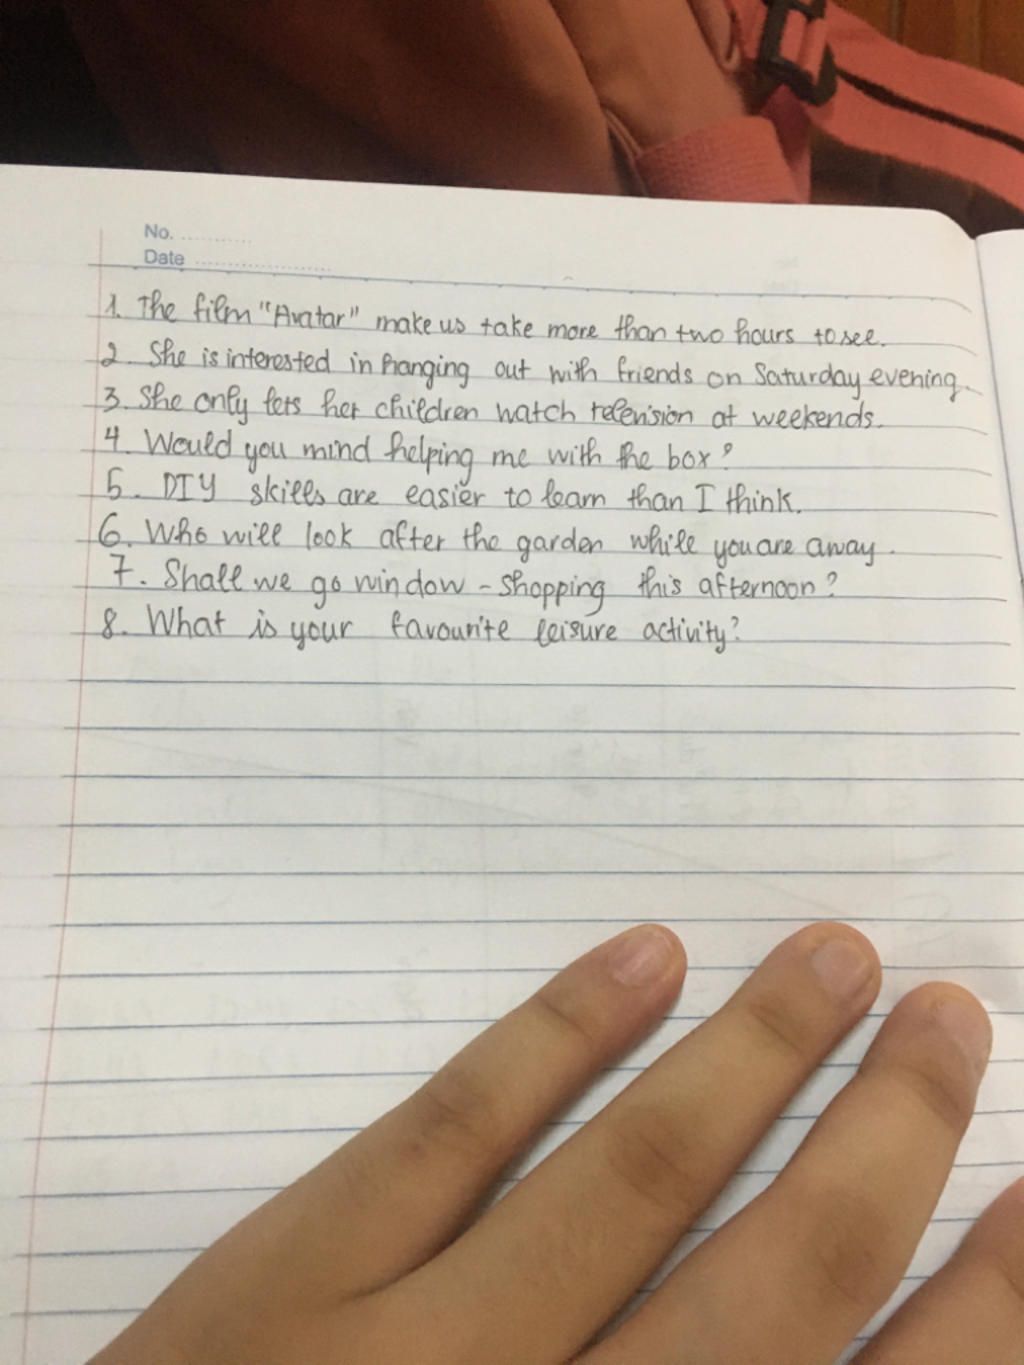 No. ............
Date ........................
1. The film "Avatar" make us take more than two hours to see.
2. She is interested in hanging out with friends on Saturday evening.
3. She only lets her children watch television at weekends.
4. Would you mind helping me with the box?
5. DIY skills are easier to learn than I think.
6. Who will look after the garden while you are away.
7. Shall we go window - shopping this afternoon?
8. What is your favourite leisure activity?